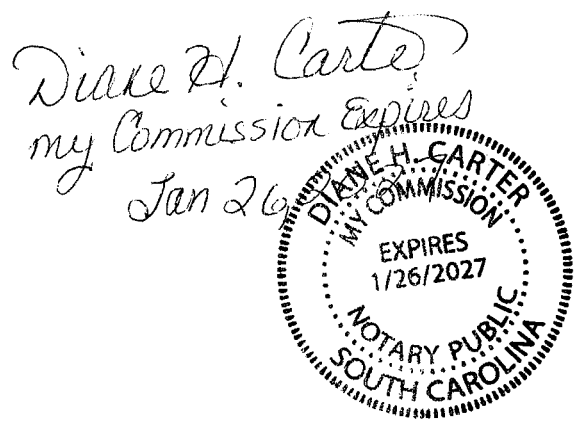 Diane H. Carter
my Commission Expires
Jan 26, 2027
DIANE H. CARTER
MY COMMISSION
EXPIRES
1/26/2027
NOTARY PUBLIC
SOUTH CAROLINA